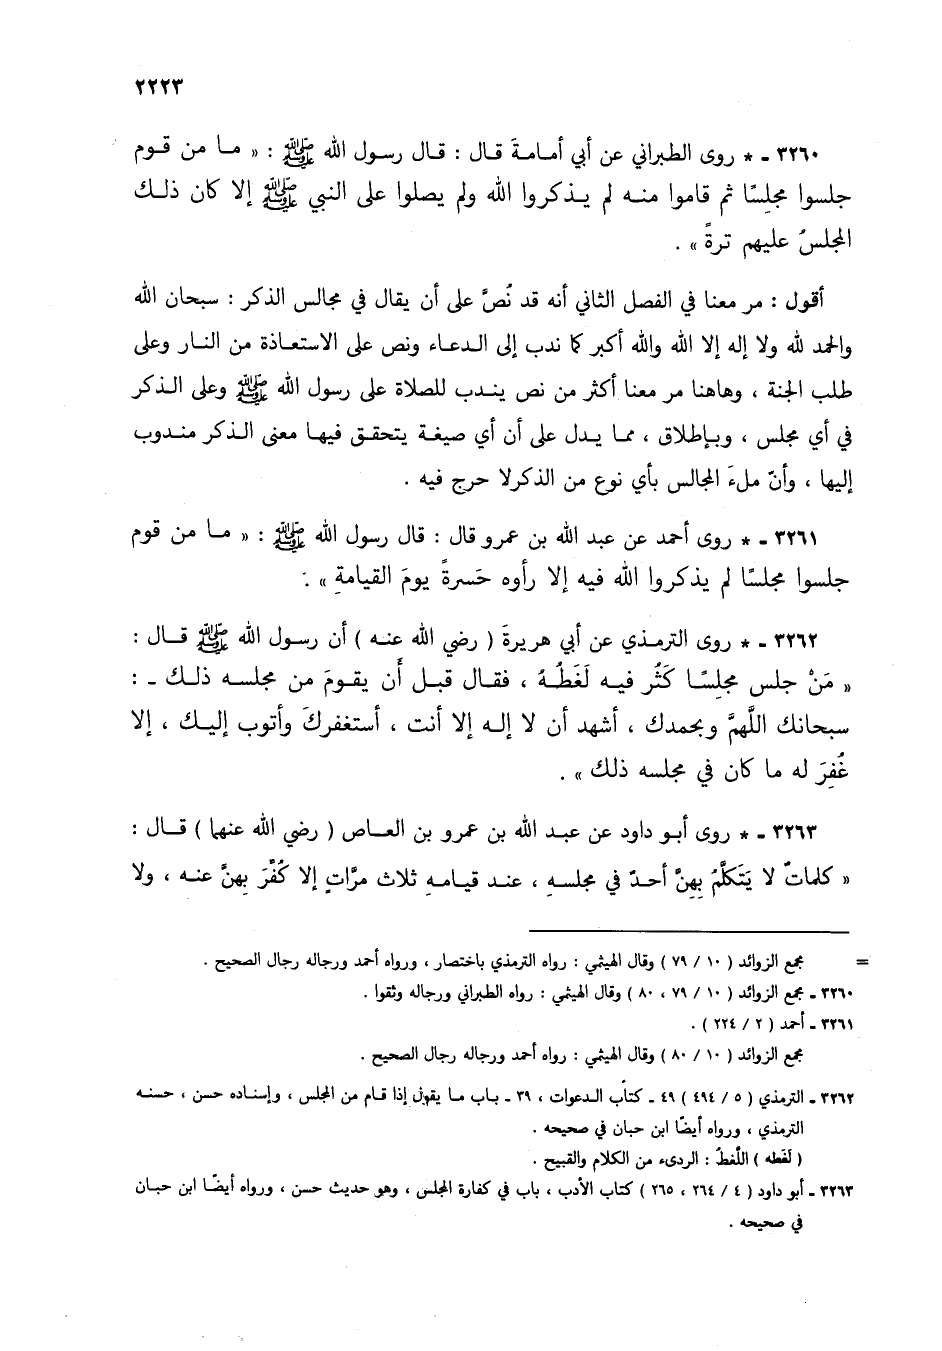 ٢٢٢٣
٣٢٦٠ ـ * روى الطبراني عن أبي أمامةَ قال : قال رسول الله ﷺ : « ما من قوم
جلسوا مجلِسًا ثم قاموا منه لم يذكروا الله ولم يصلوا على النبي ﷺ إلا كان ذلك
المجلسُ عليهم ترةً » .
أقول : مر معنا في الفصل الثاني أنه قد نُصَّ على أن يقال في مجالس الذكر : سبحان الله
والحمد لله ولا إله إلا الله والله أكبر كما ندب إلى الدعاء ونص على الاستعاذة من النار وعلى
طلب الجنة ، وهاهنا مر معنا أكثر من نص يندب للصلاة على رسول الله ﷺ وعلى الذكر
في أي مجلس ، وبإطلاق ، مما يدل على أن أي صيغة يتحقق فيها معنى الذكر مندوب
إليها ، وأنّ ملءَ المجالس بأي نوع من الذكر لا حرج فيه .
٣٢٦١ ـ * روى أحمد عن عبد الله بن عمرو قال : قال رسول الله ﷺ : « ما من قوم
جلسوا مجلسًا لم يذكروا الله فيه إلا رأوه حَسرةً يومَ القيامةِ » .
٣٢٦٢ ـ * روى الترمذي عن أبي هريرةَ ( رضي الله عنه ) أن رسول الله ﷺ قال :
« مَنْ جلس مجلِسًا كَثُر فيه لَغَطُهُ ، فقال قبل أَن يقومَ من مجلسه ذلك ـ :
سبحانك اللَّهمَّ وبحمدك ، أشهد أن لا إله إلا أنت ، أستغفركَ وأتوب إليك ، إلا
غُفِرَ له ما كان في مجلسه ذلك » .
٣٢٦٣ ـ * روى أبو داود عن عبد الله بن عمرو بن العاص ( رضي الله عنهما ) قال :
« كلماتٌ لا يَتَكلَّمُ بِهِنَّ أحدٌ في مجلسهِ ، عند قيامهِ ثلاث مرَّاتٍ إلا كُفِّرَ بِهنَّ عنه ، ولا
= مجمع الزوائد ( ١٠ / ٧٩ ) وقال الهيثمي : رواه الترمذي باختصار ، ورواه أحمد ورجاله رجال الصحيح .
٣٢٦٠ ـ مجمع الزوائد ( ١٠ / ٧٩ ، ٨٠ ) وقال الهيثمي : رواه الطبراني ورجاله وثقوا .
٣٢٦١ ـ أحمد ( ٢ / ٢٢٤ ) .
مجمع الزوائد ( ١٠ / ٨٠ ) وقال الهيثمي : رواه أحمد ورجاله رجال الصحيح .
٣٢٦٢ ـ الترمذي ( ٥ / ٤٩٤ ) ٤٩ ـ كتاب الدعوات ، ٣٩ ـ باب ما يقول إذا قام من المجلس ، وإسناده حسن ، حسنه
الترمذي ، ورواه أيضًا ابن حبان في صحيحه .
( لَغَطه ) اللَّغطُ : الردىء من الكلام والقبيح .
٣٢٦٣ ـ أبو داود ( ٤ / ٢٦٤ ، ٢٦٥ ) كتاب الأدب ، باب في كفارة المجلس ، وهو حديث حسن ، ورواه أيضًا ابن حبان
في صحيحه .